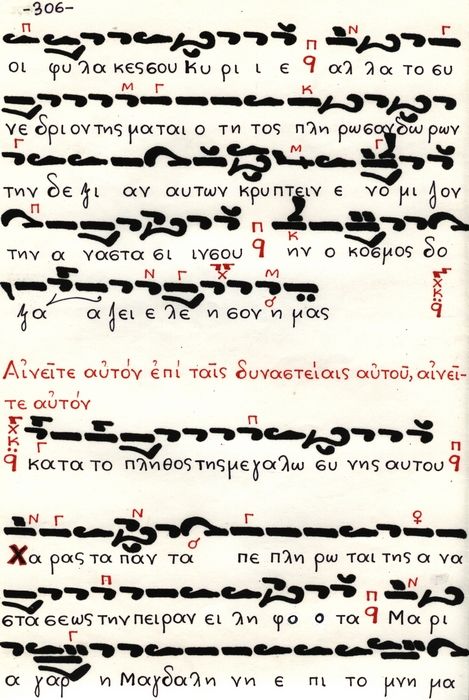 -306-
οι φυ λα κες σου Κυ ρι ι ε αλ λα το συ
νε δρι ον της μα ται ο τη τος πλη ρω σαν δω ρων
την δε ζι αν αυ των κρυ πτειν ε νο μι ζον
την α να στα σι ιν σου ην ο κοσ μος δο
ζα α ζει ε λε η σον η μας
Αἰνεῖτε αὐτόν ἐπί ταῖς δυναστείαις αὐτοῦ, αἰνεῖ-
τε αὐτόν
κα τα το πλη θος της με γα λω συ νης αυ του
Χα ρας τα παν τα πε πλη ρω ται της α να
στα σε ως την πει ραν ει λη φο ο τα Μα ρι
α γαρ η Μαγ δα λη νη ε πι το μνη μα